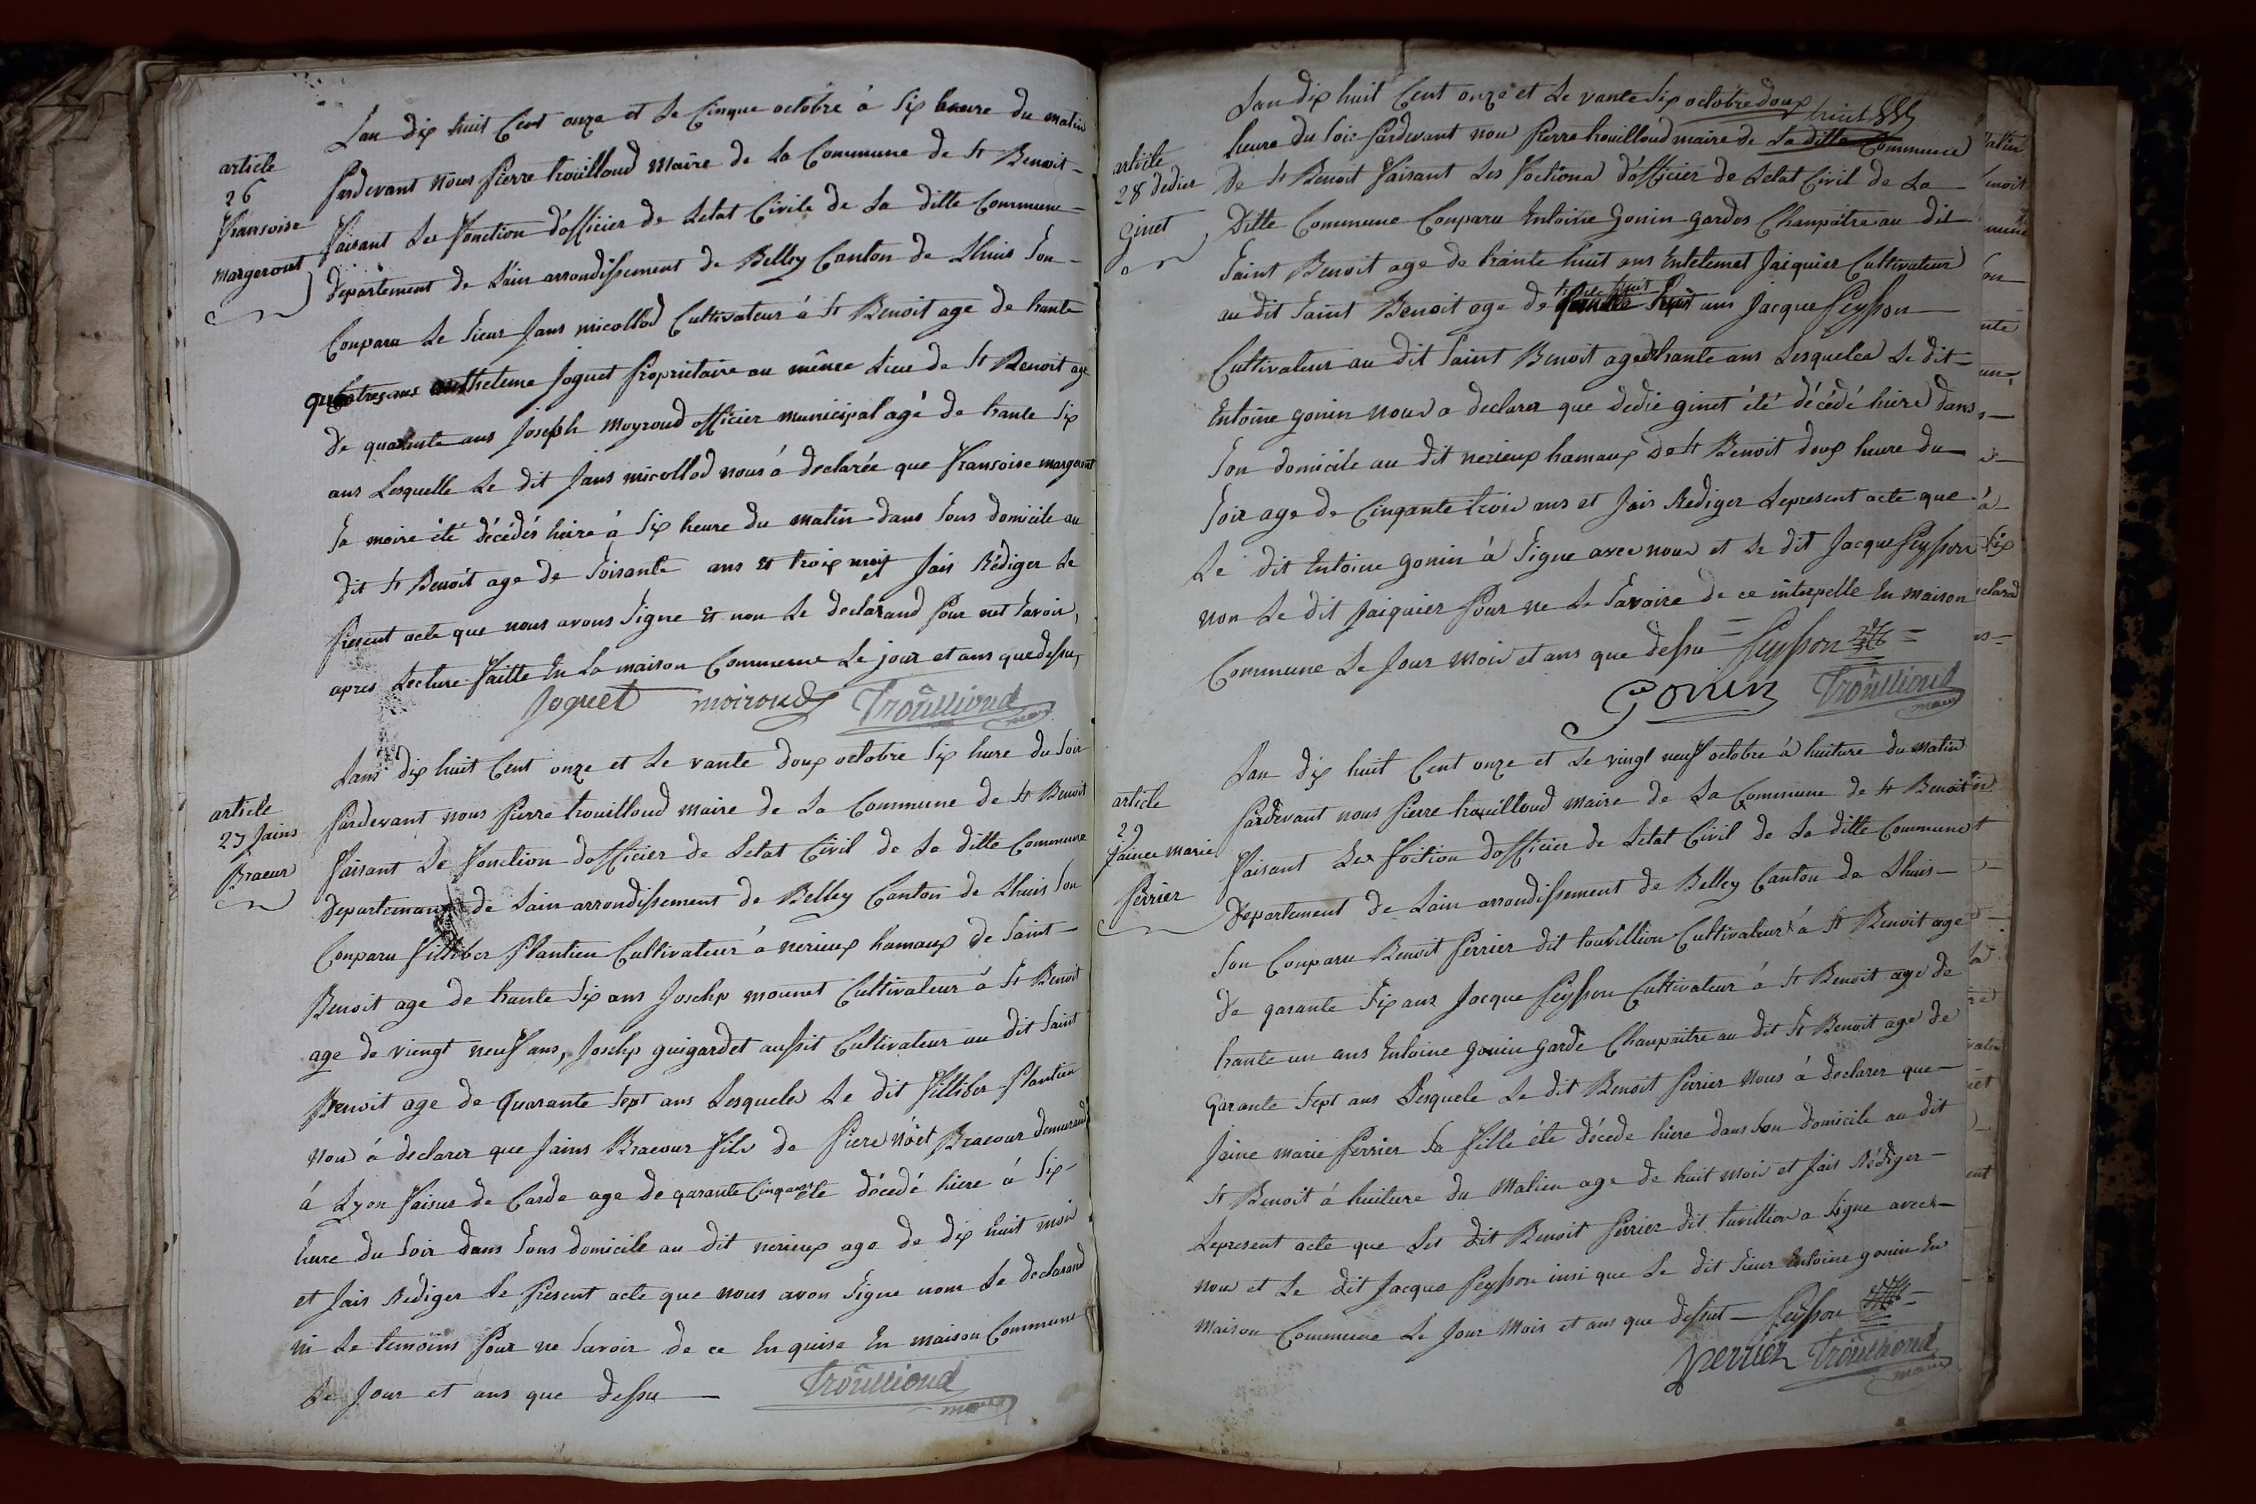 Lan dix huit Cent onze et Le Cinque octobre à Six heure du matin
article
26
fransoise
margerout
pardevant Nous pierre trouilloud Maire de La Commune de St Benoit
faisant Les fonction d'officier de Letat Civile de La ditte Commune
département de Lain arrondissement de Belley Canton de Lhuis Son
Conparu Le Sieur Jans micollod Cultivateur à St Benoit age de trante
quatres ans anthelme Joguet proprietaire au même Lieu de St Benoit age
de quarante ans Joseph moyroud officier municipal agé de trante Six
ans Lesquelle Le dit Jans micollod nous à declarée que fransoise margerout
Sa moire été décédés hiere à Six heure du matin dans Sons domicile au
dit St Benoit age de Soisante ans et troix mois Jais Rédiger Le
présent acte que nous avons Signe et non Le declarand pour net Savoir,
apres Lecture faitte En La maison Commune Le jour et ans que dessu,
Joguet moiroud Troûllioud
maire
Lans dix huit Cent onze et Le vante doux octobre Six hure du Soir
article
27 Jains
Bracur
pardevant nous pierre trouilloud maire de La Commune de St Benoit
faisant Le fonction dofficier de Letat Civil de La ditte Commune
departemant de Lain arrondissement de Belley Canton de Lhuis Son
Conparu filliber plantien Cultivateur à nerieux hamaux de Saint
Benoit age de trante Six ans Joschp mounet Cultivateur à St Benoit
age de viengt neuf ans, Joschp guigardet aussit Cultivateur au dit Saint
Benoit age de Quarante Sept ans Lesqueles Le dit filliber plantien
nou à declarer que Jains Bracour fils de piere Nöel Bracour demurand
à Lyon faisur de Carde age de qarante Cinq ans éte décedé hiere à Six
hure du Soir dans Sons domicile au dit nerieux age de dix huit moiu
et Jais Rediger Le présent acte que nous avon Signe nom Le declarand
ni Le temoins pour ne Savoir de ce En quise En maison Commune
Le Jour et ans que dessu
Troûllioud
maire
Lan dix huit Cent onze et Le vante Six octobre doux
article
28 dedier
ginet
heure du Soir pardevant nou pierre trouilloud maire de La ditte Commune
De St Benoit faisant Les foctiona d'officier de Letat Civil de La
Ditte Commune Conparu Entoine Gonin gardes Chanpâtre au dit
Saint Benoit age de trante huit ans Entelemet Jaiquier Cultivateur
au dit Saint Benoit age de huit ans Jacque peysson
Cultivateur au dit Saint Benoit age de trante ans Lesqueles Le dit
Entoine gonin nous a declarer que dedie ginet été décédé hiere dans
Son domicile au dit nerieux hamaux De St Benoit doux heure du
Soir age de Cinqante trois ans et Jais Rediger Lepresent acte que
Le dit Entoine gonin à Signe avec nous et Le dit Jacque peysson
non Le dit Jaiquier pour ne Le Savoire de ce interpelle En maison
Commune Le Jour moiu et ans que dessu peysson
Gonin Troûllioud
maire
Lan dix huit Cent onze et Le vingt neuf octobre à huiture du matin
article
29
Jaince marie
perrier
pardevant nous pierre trouilloud maire de La Commune de St Benoit
faisant Les foction dofficier de Letat Civil de La ditte Commune
departement de Lain arrondissement de Belley Canton de Lhuis
Son Conparu Benoit perrier dit touvillion Cultivateur à St Benoit age
de qarante Six ans Jacque peysson Cultivateur à St Benoit age de
trante un ans Entoine gonin garde Chanpaitre au dit St Benoit age de
Qarante Sept ans Lesquele Le dit Benoit perrier Nous à declarer que
Jaine marie perrier Sa fille éte décede hiere dans Son domicile au dit
St Benoit à huiture du Matien age de huit moiu et Jais Rédiger
Lepresent acte que Les dit Benoit perrier dit tuvillion a Signe avec
nou et Le dit Jacque peysson insi que Le dit Sieur Entoine gonin En
maison Commune Le Jour Mois et ans que dessut peysson
perrier Troûllioud
maire